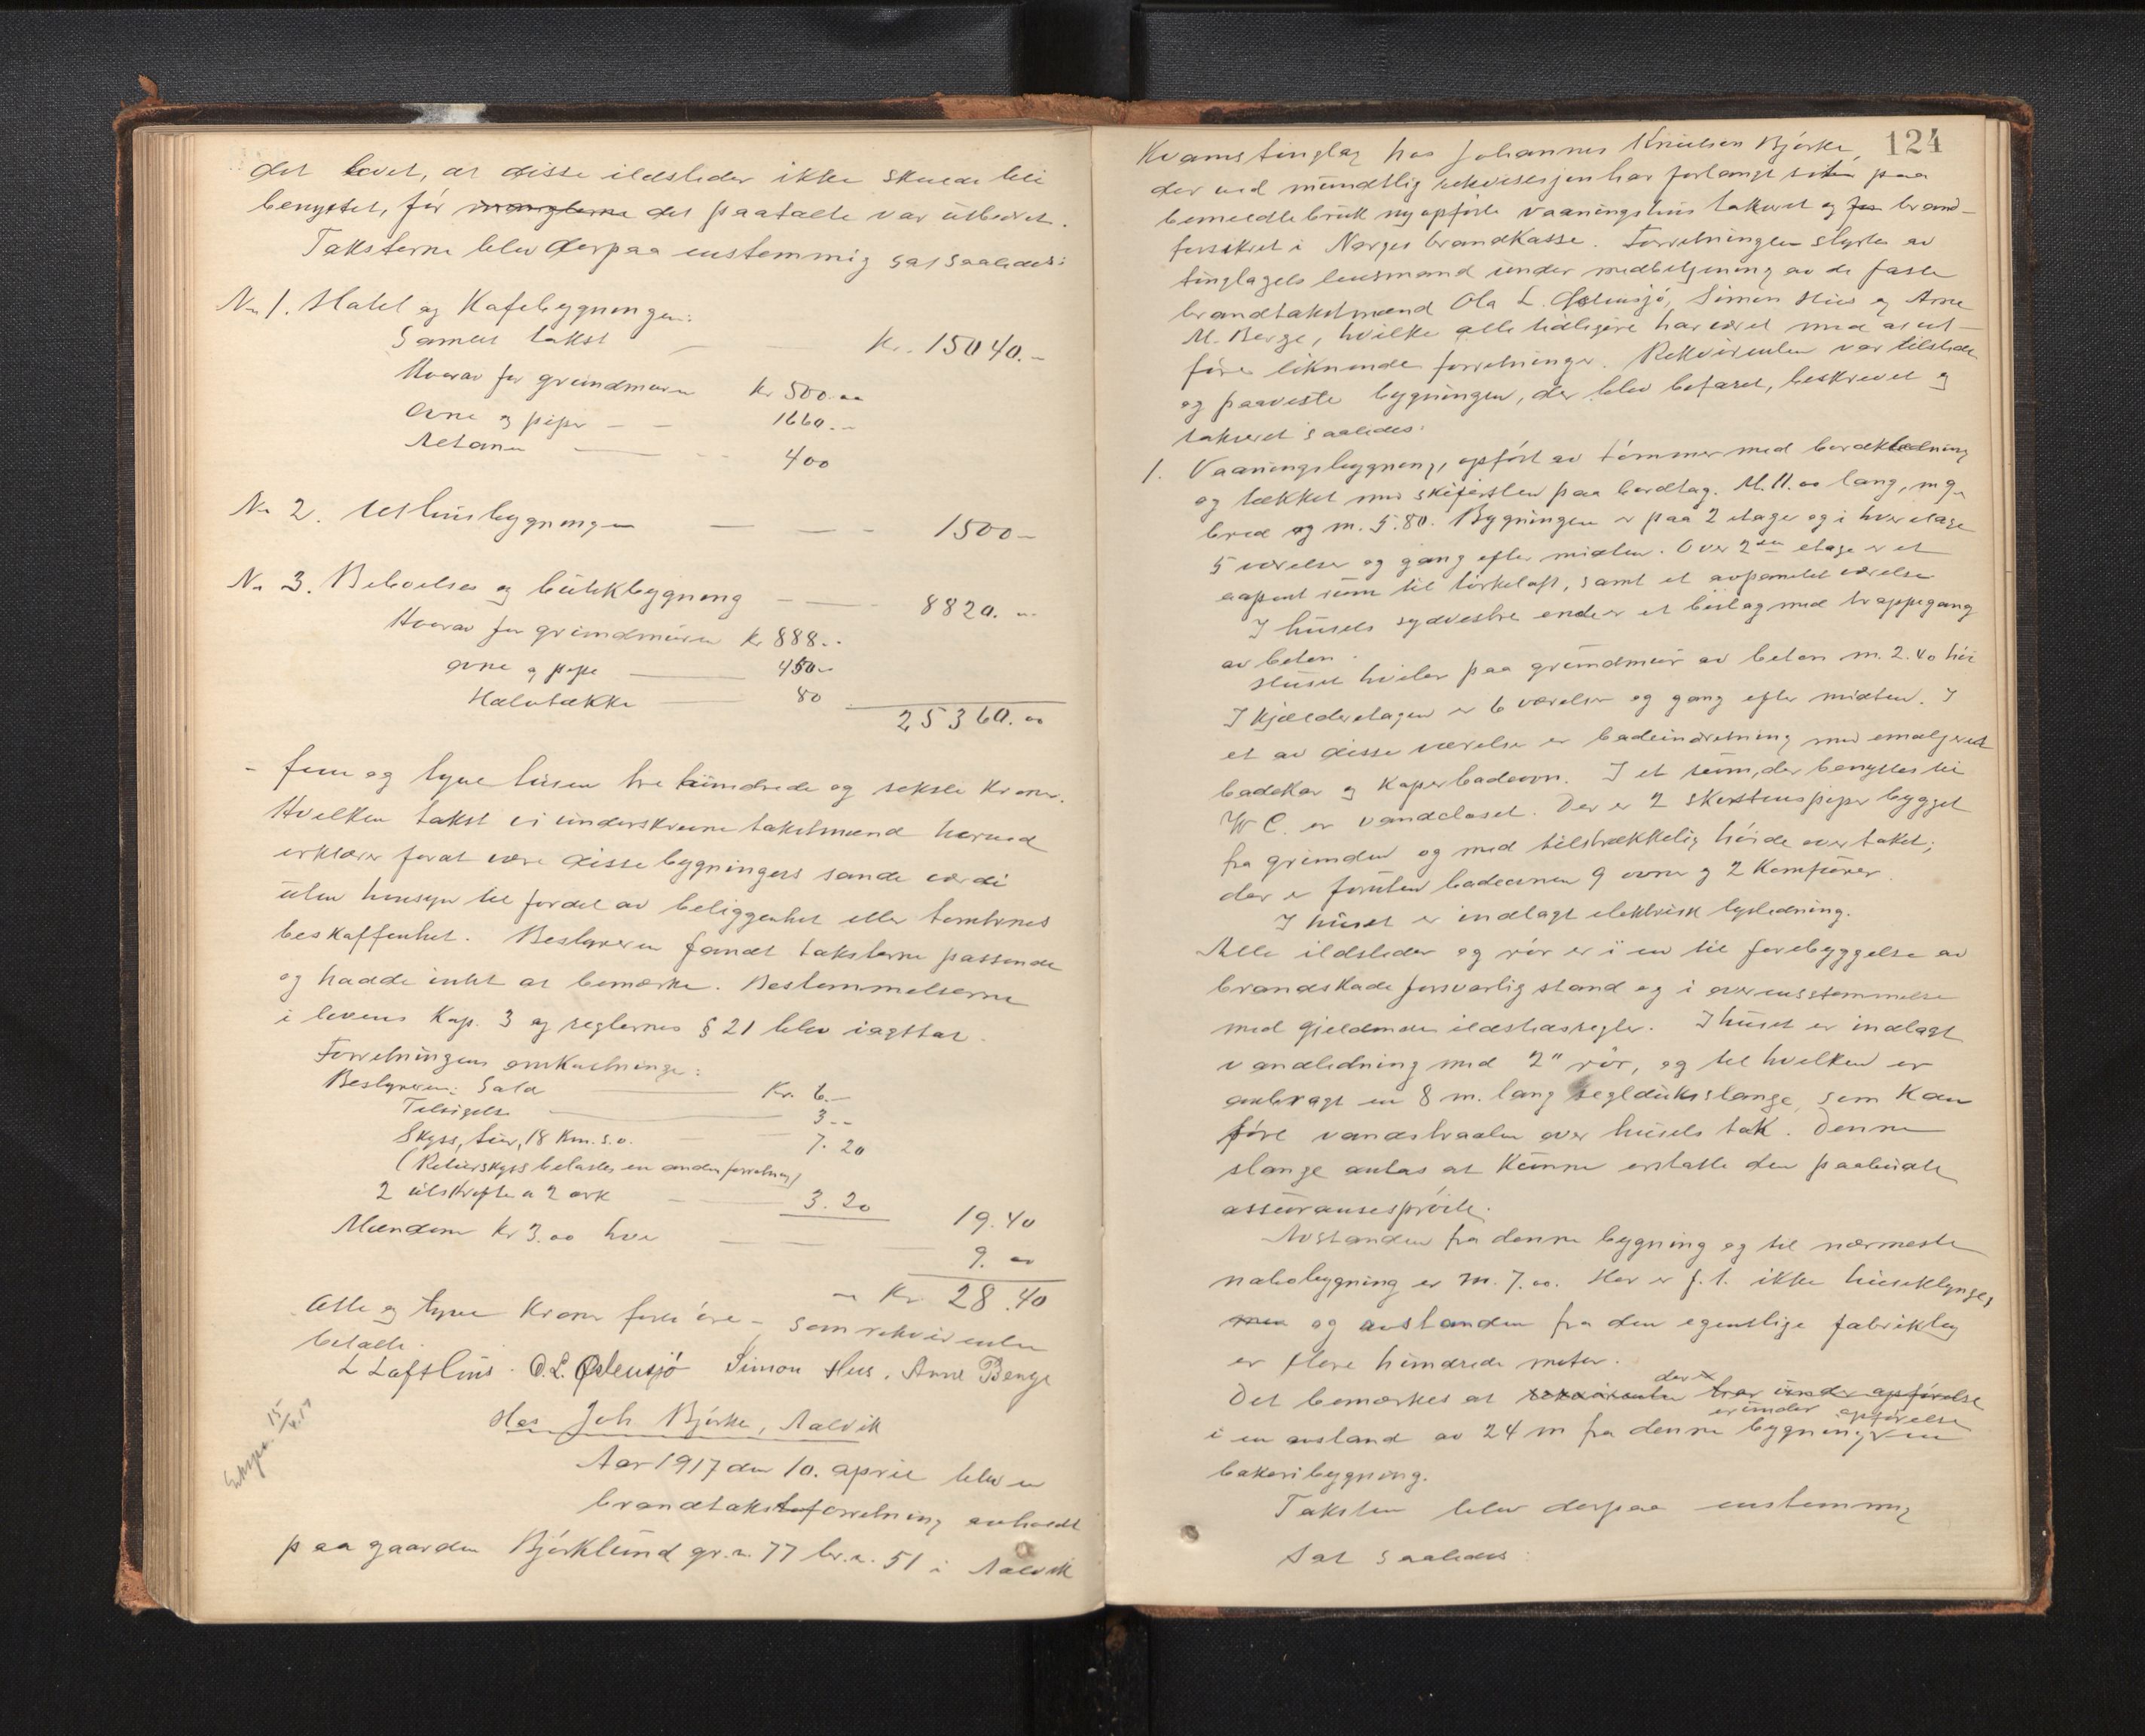 det lovet, at disse ildsteder ikke skulde bli
benyttet, før manglerne det paatalte var utbedret.
Taksterne blev derpaa enstemmig sat saaledes:
No 1. Hotel og Kafebygningen:
Samlet takst — — Kr. 15040.–
Hvorav for grundmuren Kr 500.00
Ovne og piper — — 1660.–
Altanen — — 400
No 2. Uthusbygningen — — – 1500–
No 3. Beboelses og butikbygning — — 8820.–
Hvorav for grundmuren Kr 888.–
ovne og pipe — 450–
Halvtække — 80
25360.00
– fem og tyve tusen tre hundrede og seksti kroner.
Hvilken takst vi underskrevne takstmænd herved
erklærer forat være disse bygningers sande værdi
uten hensyn til fordel av beliggenhet eller tomternes
beskaffenhet. Bestyreren fandt taksterne passende
og hadde intet at bemærke. Bestemmelserne
i lovens Kap. 3 og reglernes § 21 blev iagttat.
Forretningens omkostninger:
Bestyreren: Salær — Kr. 6.–
Tilsigelse — 3.–
Skyss, tur, 18 Km. s.v. — 7.20
(Returskyss belastes en anden forretning)
2 utskrifter a 2 ark — 3.20 19.40
Mændene Kr 3.00 hver — 9.00
– Kr 28.40
Otte og tyve Kroner forti øre – som rekvirenten
betalte.
L Lofthus. O. L. Østensjö Simon Hus. Arne Berge
Ekspd. 15/4.17
Hos Joh Bjørke, Aalvik
Aar 1917 den 10. april blev en
brandtakstforretning avholdt
paa gaarden Bjørklund gr.n. 77 br.n. 51 i Aalvik
124
Kvams tinglag hos Johannes Knutsen Bjørke,
der ved mundtlig rekvisisjon har forlangt sit paa
bemeldte bruk nyopførte vaaningshus taksert og for brand-
forsikret i Norges brandkasse. Forretningen styrtes av
tinglagets lensmand under medbetjening av de faste
brandtakstmænd Ola L. Østensjø, Simon Hus og Arne
M. Berge, hvilke alle tidligere har været med at ut-
føre liknende forretninger. Rekvirenten var tilstede
og paaviste bygningen, der blev befaret, beskrevet og
taksert saaledes:
1. Vaaningsbygning, opført av tømmer med bordklædning
og tækket med skifersten paa bordtag. M. 11.00 lang, m 9.
bred og m. 5.80. Bygningen er paa 2 etager og i hver etage
5 værelser og gang efter midten. Over 2den etage er et
aapent rum til tørkeloft, samt et avpanelet værelse
I husets sydvestre ende er et bislag med trappegang
av beton.
Huset hviler paa grundmur av beton m. 2.40 høi
I kjælderetagen er 6 værelser og gang efter midten. I
et av disse værelse er badeindretning med emaljeret
badekar og kaperbadeovn. I et rum, der benyttes til
W C. er vandcloset. Der er 2 skorstenspiper bygget
fra grunden og med tilstrækkelig høide over taket;
der er foruten badeovnen 9 ovner og 2 Komfurer.
I huset er indlagt elektrisk lysledning.
Alle ildsteder og rør er i en til forebyggelse av
brandskade forsvarlig stand og i overensstemmelse
med gjeldende ildstedsregler. I huset er indlagt
vandledning med 2" rør, og til hvilken er
anbragt en 8 m. lang seglduksslange, som kan
føre vandstraalen over husets tak. Denne
slange antas at kunne erstatte den paabudte
assuransesprøite.
Avstanden fra denne bygning og til nærmeste
nabobygning er m. 7.00. Her er f. t. ikke huseklynger
men og avstanden fra den egentlige fabrikbyg
er flere hundrede meter.
Det bemærkes at rekvirenten der har under opførelse
i en avstand av 24 m fra denne bygning er under opførelse en
bakeribygning.
Taksten blev derpaa enstemmig
sat saaledes: